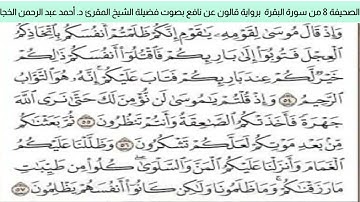 الصحيفة 8 من سورة البقرة برواية قالون عن نافع بصوت فضيلة الشيخ المقرئ د. أحمد عبد الرحمن الخجا
وَإِذْ قَالَ مُوسَىٰ لِقَوْمِهِ يَٰقَوْمِ إِنَّكُمْ ظَلَمْتُمْ أَنفُسَكُم بِاتِّخَاذِكُمُ
الْعِجْلَ فَتُوبُوا إِلَىٰ بَارِئِكُمْ فَاقْتُلُوا أَنفُسَكُمْ ذَٰلِكُمْ
خَيْرٌ لَّكُمْ عِندَ بَارِئِكُمْ فَتَابَ عَلَيْكُمْ إِنَّهُ هُوَ التَّوَّابُ
الرَّحِيمُ ٥٤ وَإِذْ قُلْتُمْ يَٰمُوسَىٰ لَن نُّؤْمِنَ لَكَ حَتَّىٰ نَرَى اللَّهَ
جَهْرَةً فَأَخَذَتْكُمُ الصَّٰعِقَةُ وَأَنتُمْ تَنظُرُونَ ٥٥ ثُمَّ بَعَثْنَٰكُم
مِّنۢ بَعْدِ مَوْتِكُمْ لَعَلَّكُمْ تَشْكُرُونَ ٥٦ وَظَلَّلْنَا عَلَيْكُمُ
الْغَمَامَ وَأَنزَلْنَا عَلَيْكُمُ الْمَنَّ وَالسَّلْوَىٰ كُلُوا مِن طَيِّبَٰتِ
مَا رَزَقْنَٰكُمْ وَمَا ظَلَمُونَا وَلَٰكِن كَانُوا أَنفُسَهُمْ يَظْلِمُونَ ٥٧